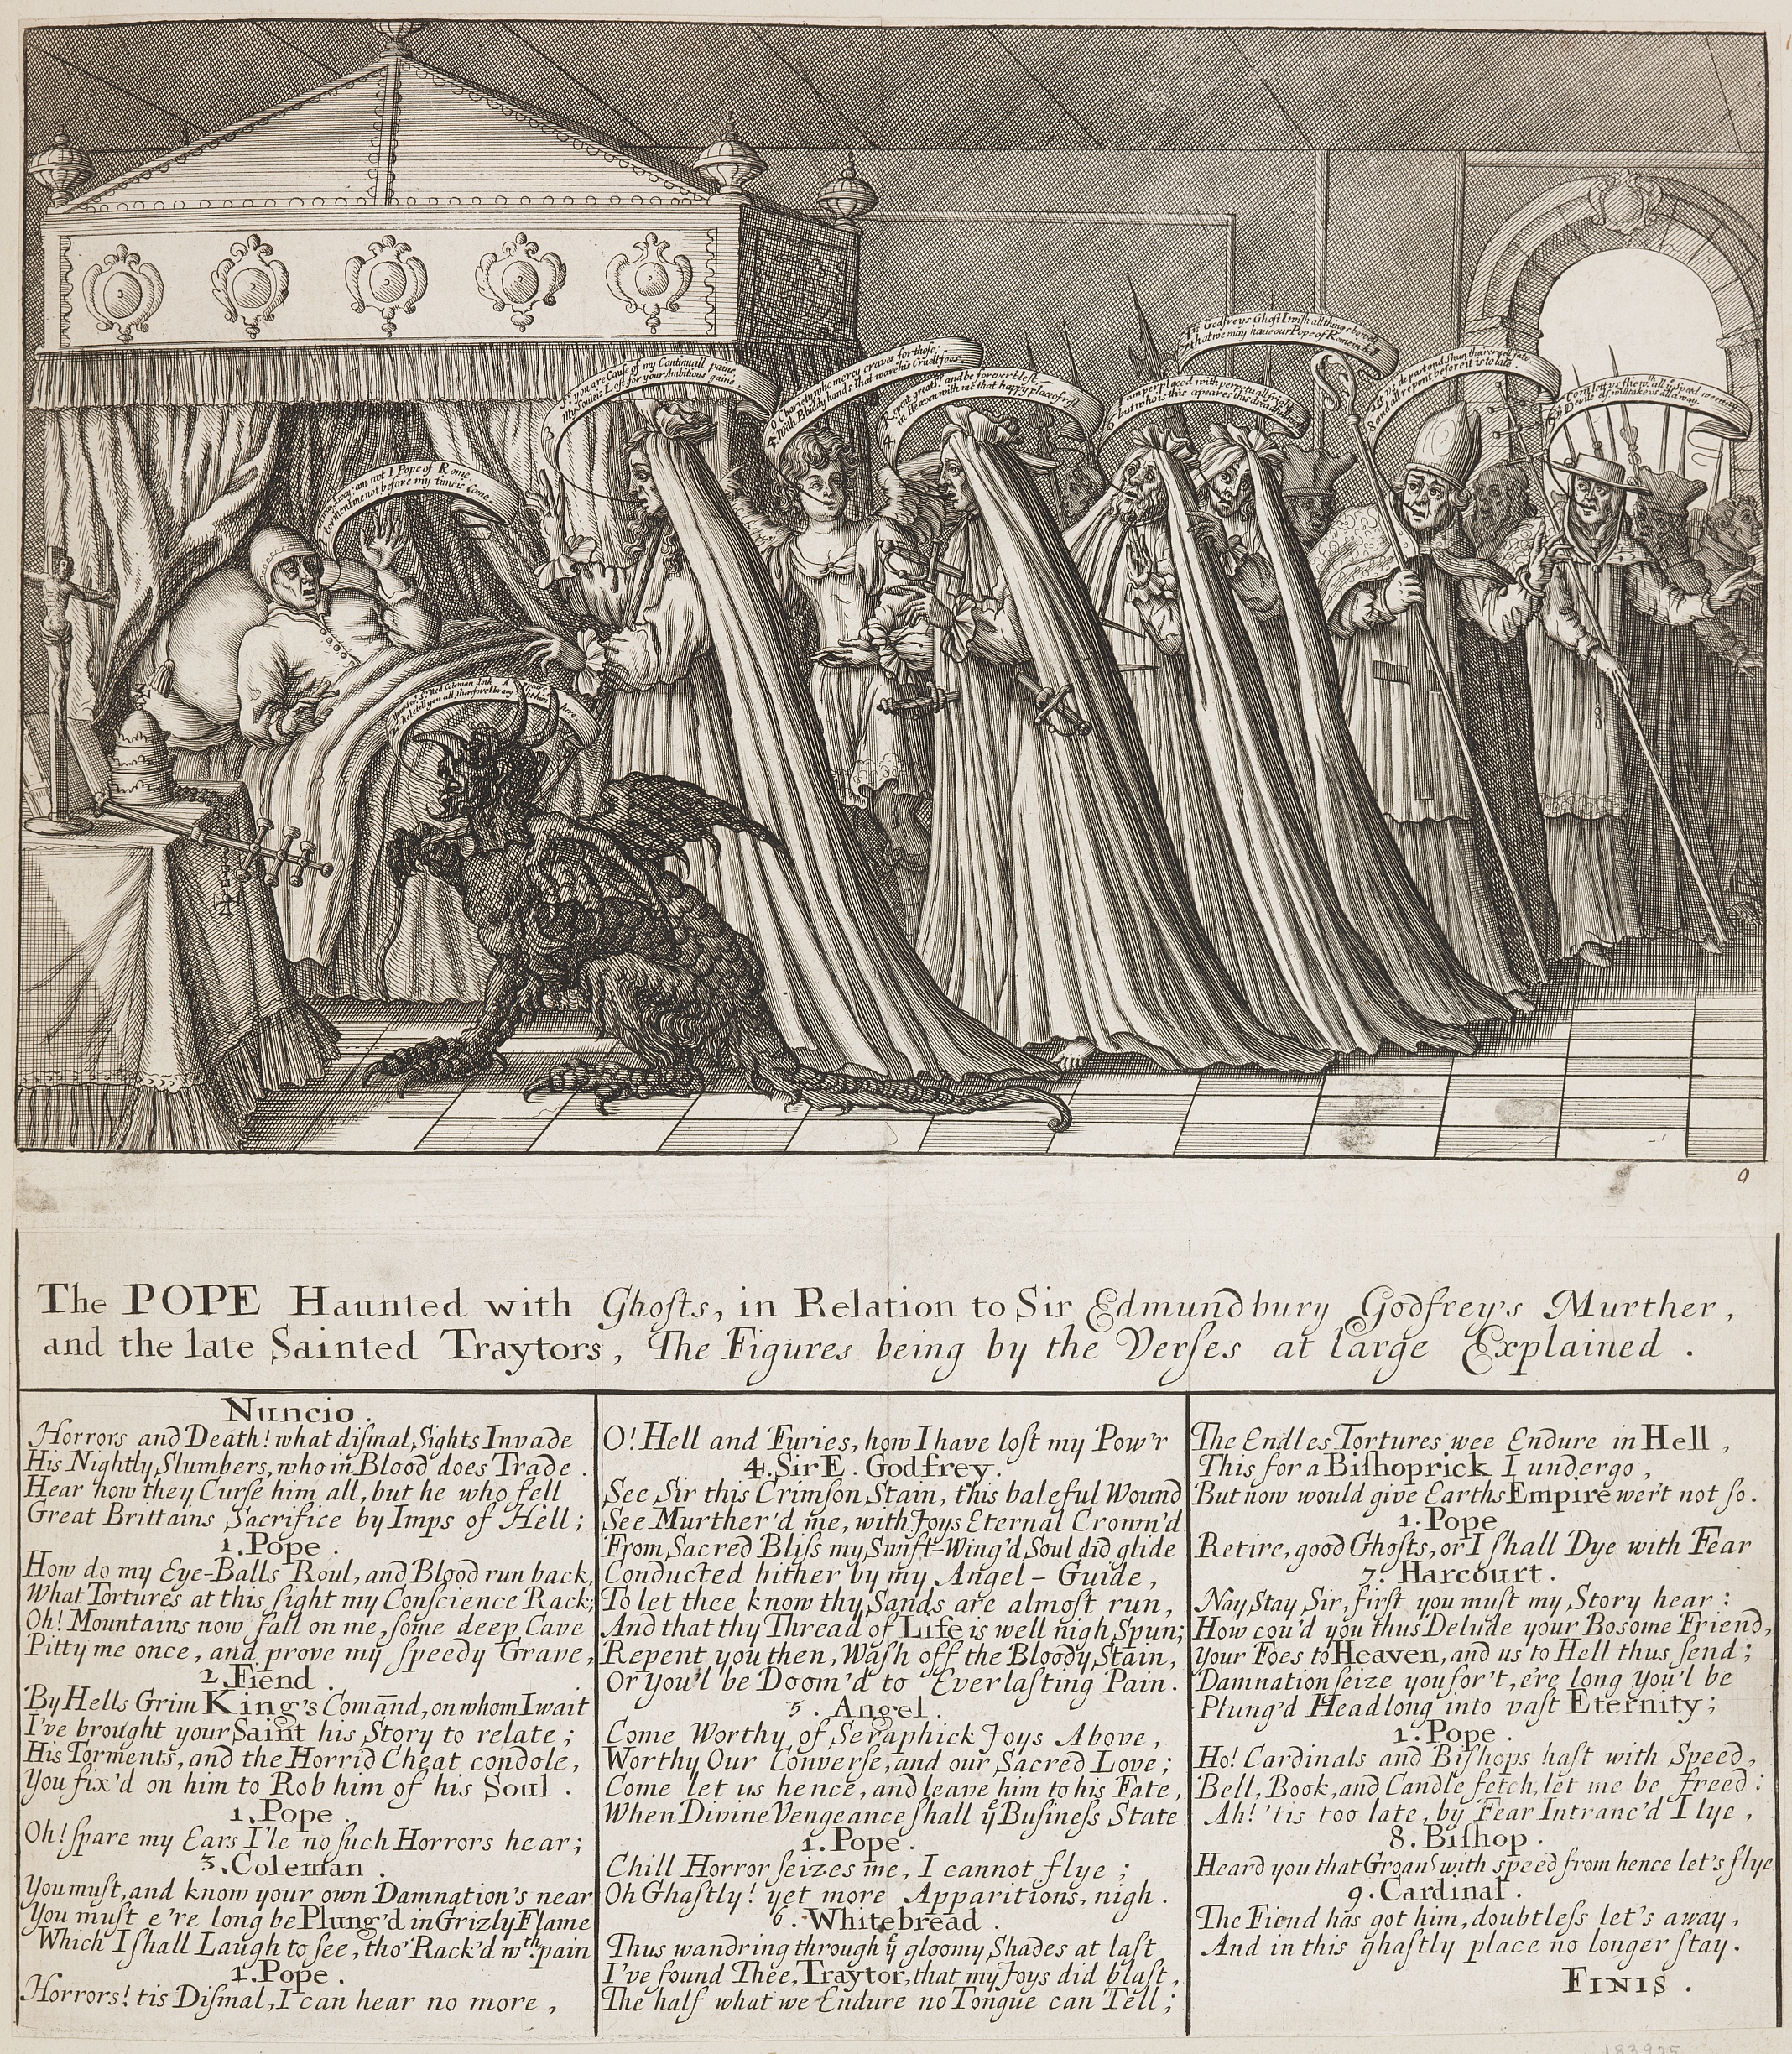 away, am not I Pope of Rome
torment me not before my time is Come.
3 Sr. you are Cause of my Continuall paine,
My Soule is Lost for your Ambitious gaine
4 O Charety, who mercy craves for those
With Bluddy hands that warehis Cruell foes
4 Repent great Sr. and be for ever blest
in Heaven with me that happy place of rest
6 I am perplaced with perpetuall fright
but who is this apeares this dreadfull
Sr. Godfreys Ghost I wish all things
that we may have our Pope of Rome in
8 Let us depart and Shun that cruel fate
and all repent before it is to late
9 Com let us flie with all ye Speed we may
Devils els will take us all away.
Ned Coleman doth
hele tell you all therefore I bring him here
9
The POPE Haunted with Ghosts, in Relation to Sir Edmundbury Godfrey's Murther,
and the late Sainted Traytors, The Figures being by the Verses at large Explained.
Nuncio.
Horrors and Death! what dismal Sights Invade
His Nightly Slumbers, who in Blood does Trade.
Hear how they Curse him all, but he who fell
Great Brittains Sacrifice by Imps of Hell;
1. Pope.
How do my Eye-Balls Roul, and Blood run back,
What Tortures at this sight my Conscience Rack;
Oh! Mountains now fall on me, some deep Cave
Pitty me once, and prove my speedy Grave,
2. Fiend.
By Hells Grim King's Comānd, on whom I wait
I've brought your Saint his Story to relate;
His Torments, and the Horrid Cheat condole,
You fix'd on him to Rob him of his Soul.
1. Pope.
Oh! spare my Ears I'le no such Horrors hear;
3. Coleman.
You must, and know your own Damnation's near
You must e're long be Plung'd in Grizly Flame
Which I shall Laugh to see, tho' Rack'd wth. pain
1. Pope.
Horrors! tis Dismal, I can hear no more,
O! Hell and Furies, how I have lost my Pow'r
4. Sir E. Godfrey.
See Sir this Crimson Stain, this baleful Wound
See Murther'd me, with Joys Eternal Crown'd
From Sacred Bliss my Swift-Wing'd Soul did glide
Conducted hither by my Angel-Guide,
To let thee know thy Sands are almost run,
And that thy Thread of Life is well nigh Spun;
Repent you then, Wash off the Bloody Stain,
Or You'l be Doom'd to Everlasting Pain.
5. Angel.
Come Worthy of Seraphick Joys Above,
Worthy Our Converse, and our Sacred Love;
Come let us hence, and leave him to his Fate,
When Divine Vengeance shall ye Business State
1. Pope.
Chill Horror seizes me, I cannot flye;
Oh Ghastly! yet more Apparitions, nigh.
6. Whitebread.
Thus wandring through ye gloomy Shades at last
I've found Thee, Traytor, that my Joys did blast,
The half what we Endure no Tongue can Tell;
The Endles Tortures wee Endure in Hell,
This for a Bishoprick I undergo,
But now would give Earths Empire wer't not so.
1. Pope
Retire, good Ghosts, or I shall Dye with Fear
7. Harcourt.
Nay Stay, Sir, first you must my Story hear:
How cou'd you thus Delude your Bosome Friend,
Your Foes to Heaven, and us to Hell thus send;
Damnation seize you for't, e're long you'l be
Plung'd Headlong into vast Eternity;
1. Pope.
Ho! Cardinals and Bishops hast with Speed,
Bell, Book, and Candle fetch, let me be freed:
Ah! 'tis too late, by Fear Intranc'd I lye,
8. Bishop.
Heard you that Groan? with speed from hence let's flye
9. Cardinal.
The Fiend has got him, doubtless let's away,
And in this ghastly place no longer stay.
FINIS.
183925